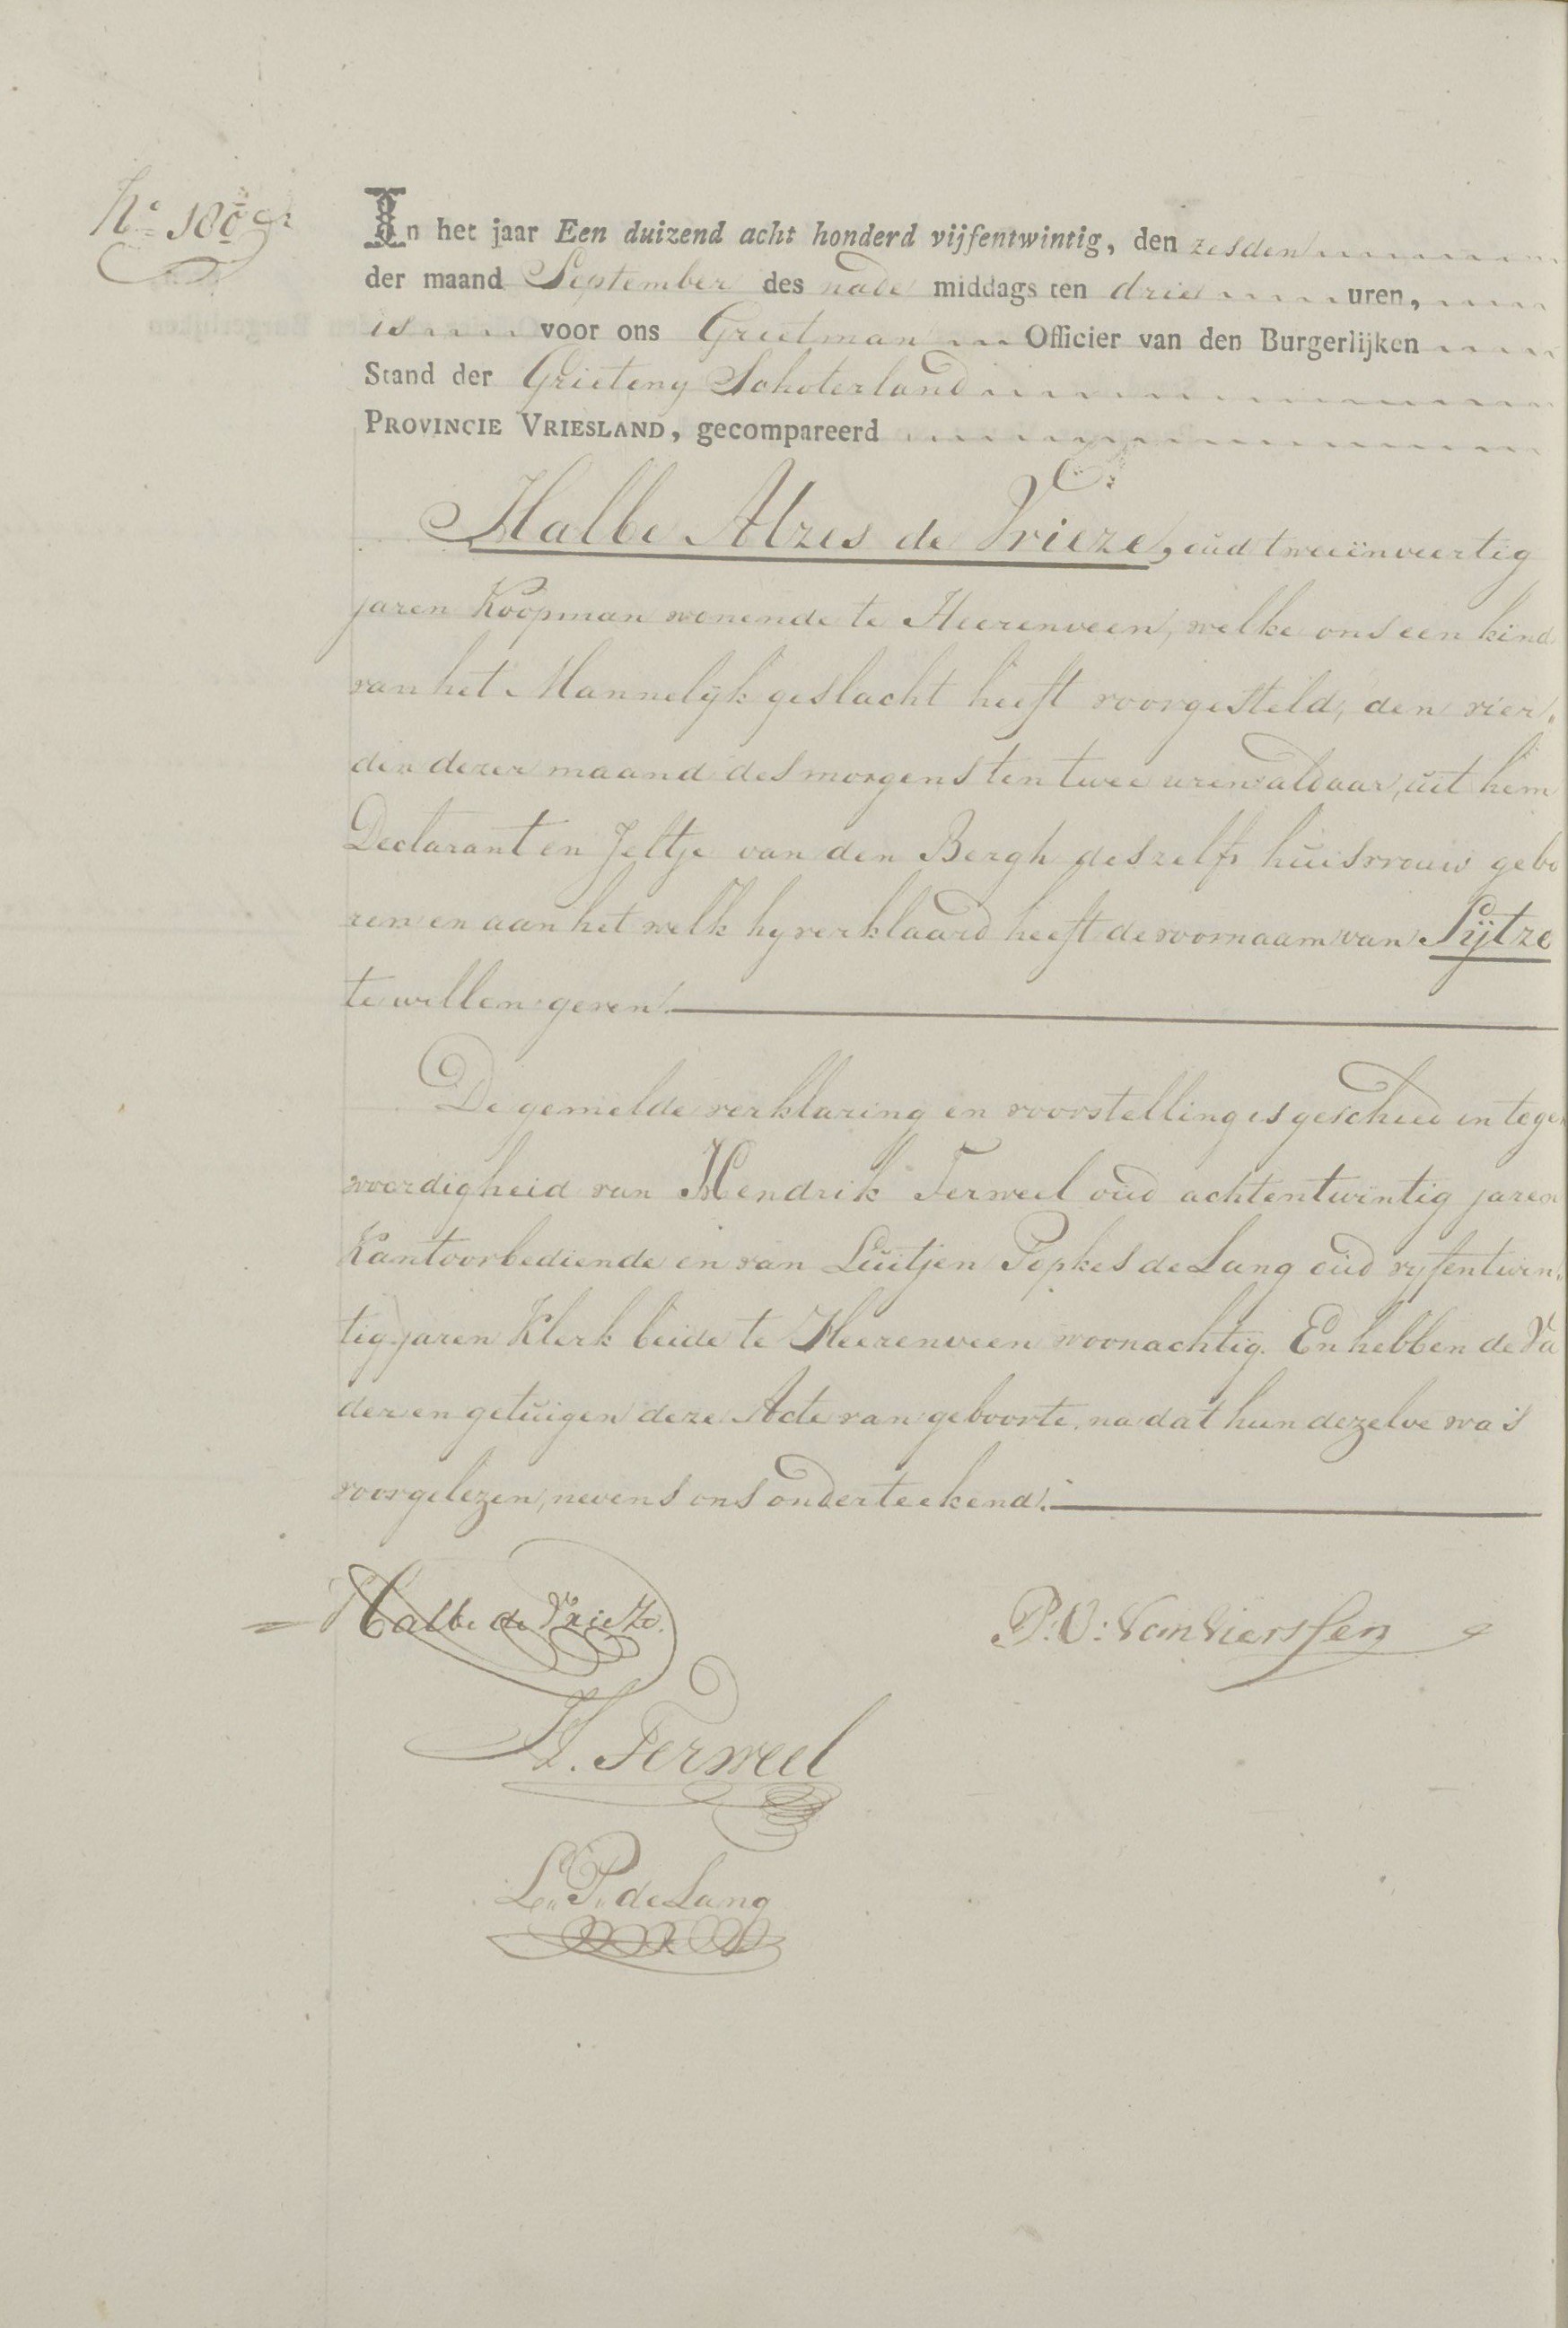 In het jaar Een duizend acht honderd vijfentwintig, den zesden
der maand September des nade middags ten drie uren,
is voor ons Grietman Officier van den Burgerlijken
Stand der Grieteny Schoterland
PROVINCIE VRIESLAND, gecompareerd
Halbe Atzes de Vrieze, oud tweeënveertig
jaren Koopman wonende te Heerenveen, welke ons een kind
van het Mannelijk geslacht heeft voorgesteld, den vier„
den dezer maand des morgens ten twee uren aldaar, uit hem
Declarant en Jeltje van den Bergh deszelfs huisvrouw gebo
ren en aan het welk hy verklaard heeft de voornaam van Sijtze
te willen geven.
De gemelde verklaring en voorstelling is geschied in tegen
woordigheid van Hendrik Terweel oud achtentwintig jaren
Kantoorbediende en van Luitjen Popkes de Lang oud vyfentwin„
tig jaren Klerk beide te Heerenveen woonachtig. En hebben de Va
der en getuigen deze Acte van geboorte, na dat hun dezelve was
voorgelezen, nevens ons onderteekend.
Halbe de Vrieze.
P: V: Van Vierssen
H. Terweel
L„ P„ de Lang